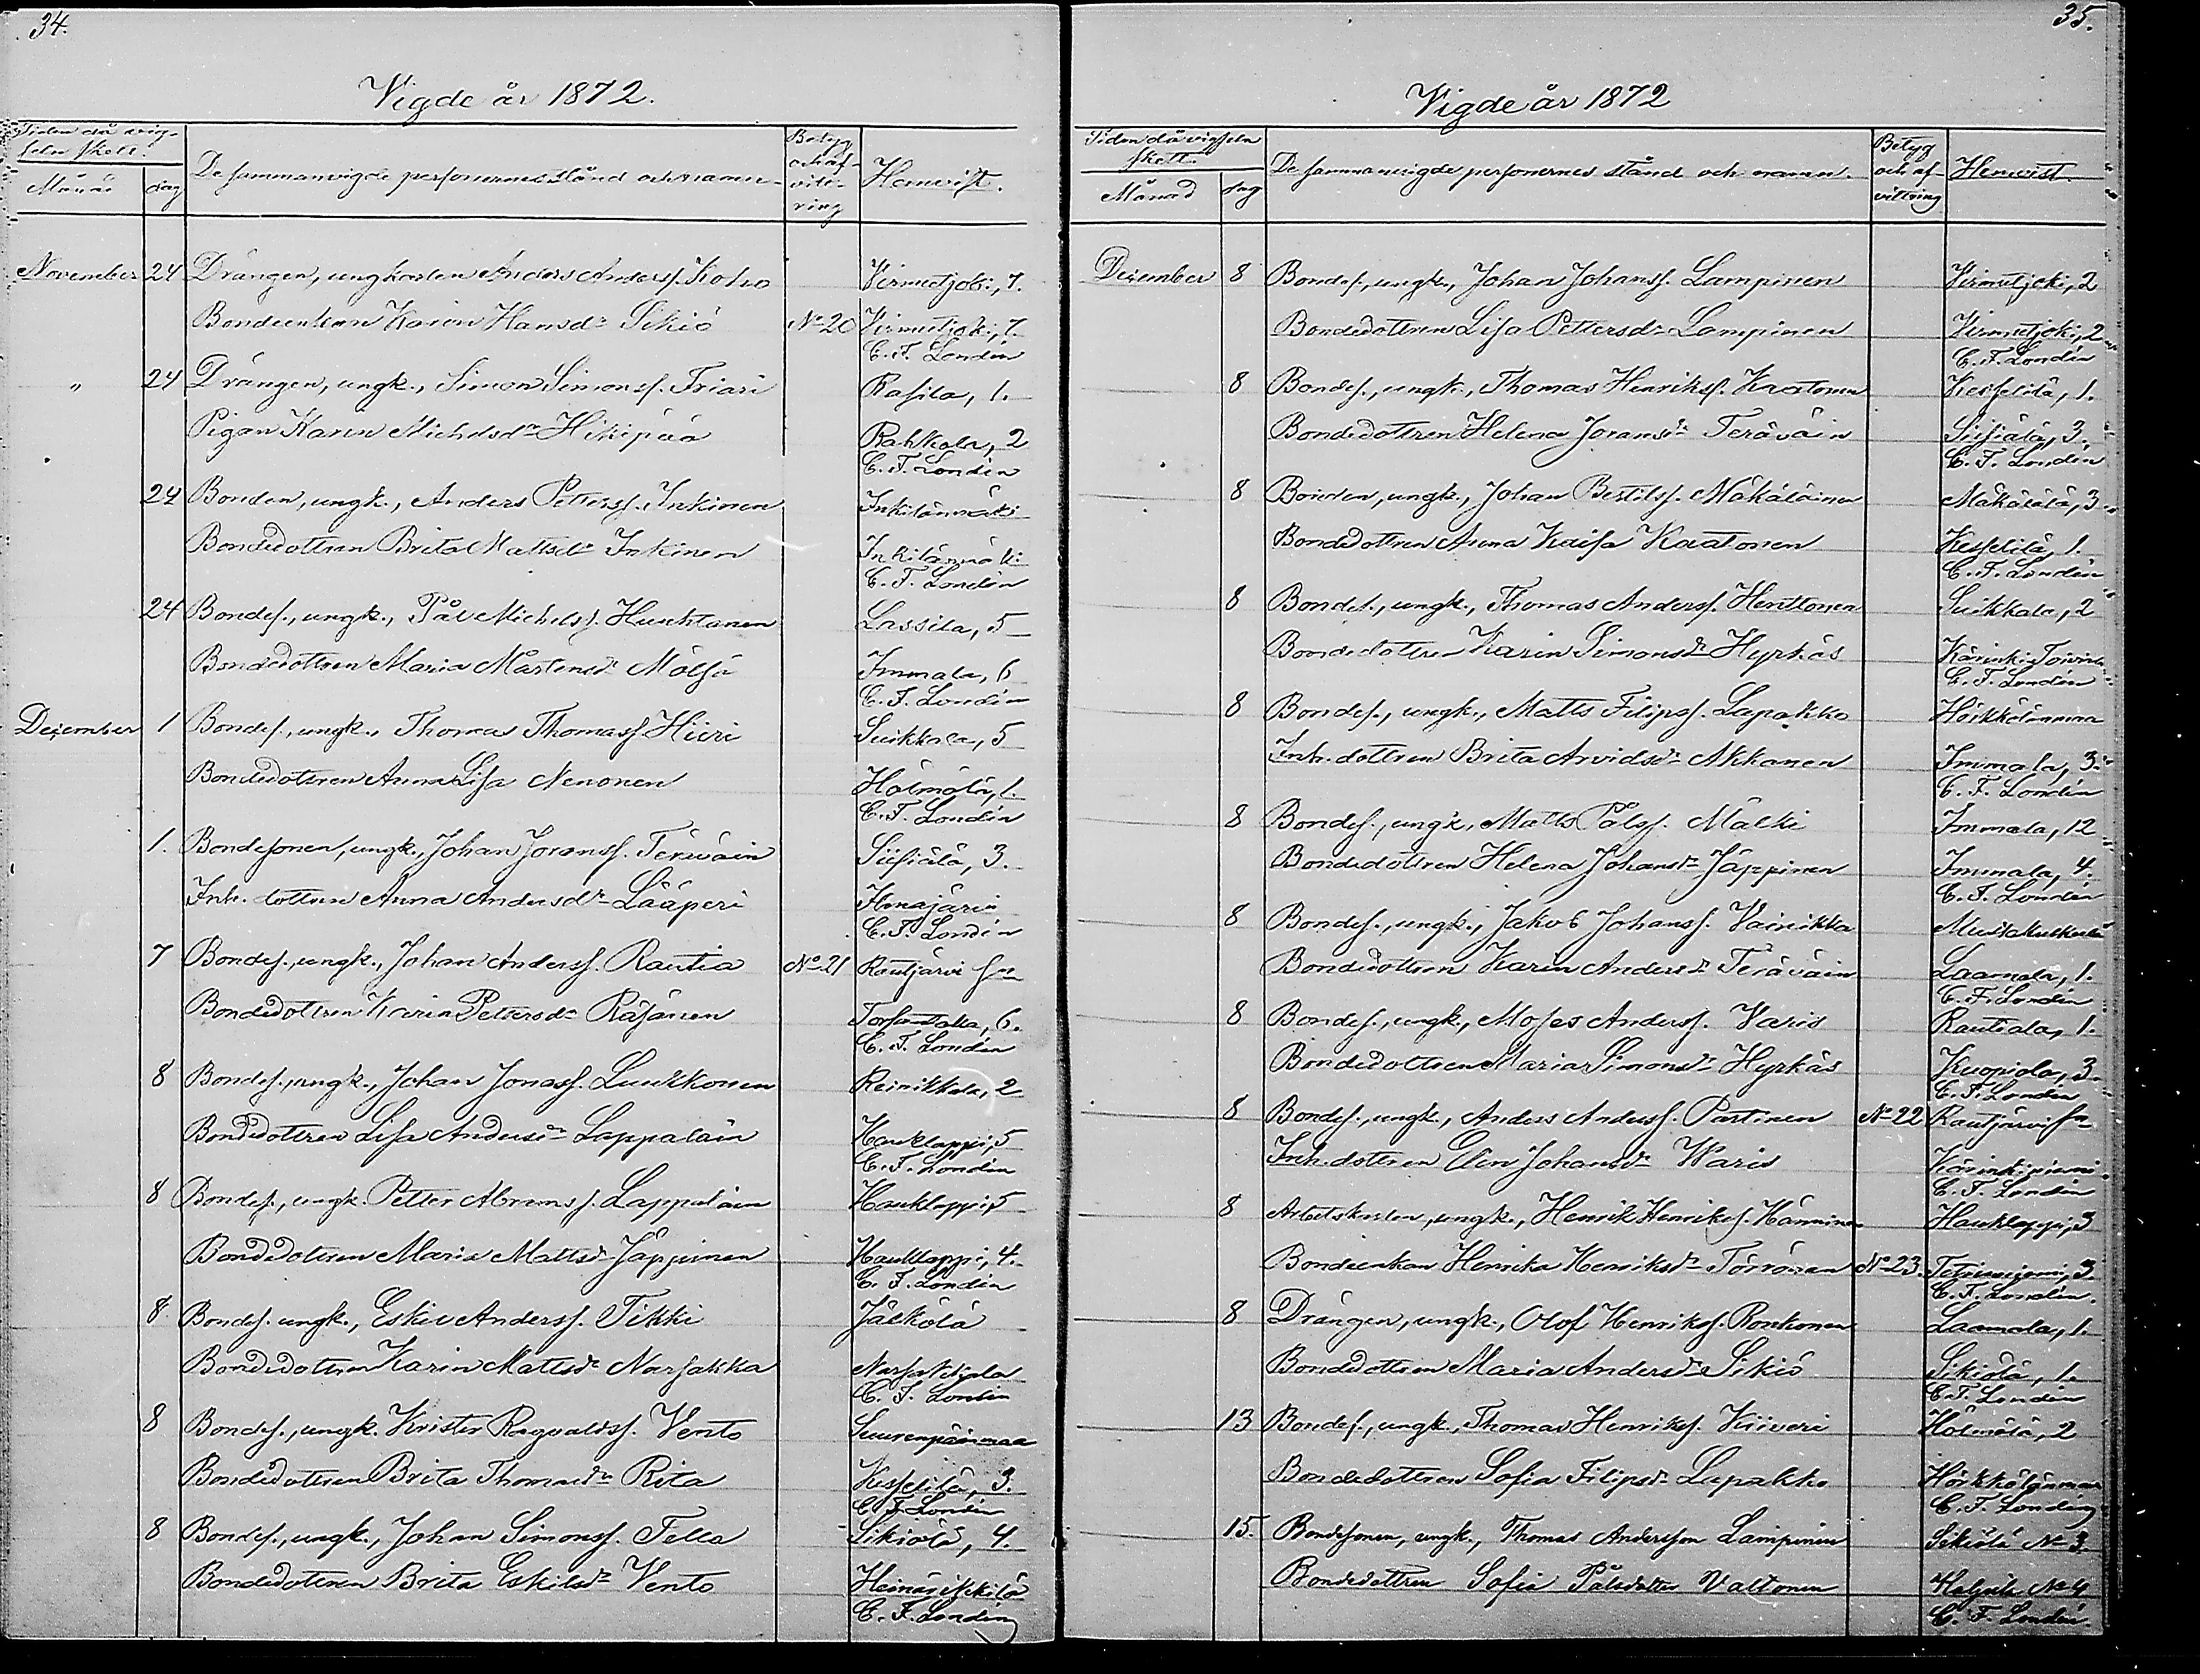 34.
Vigde år 1872.
Tiden då vig-
seln skett.
Månad
dag
De sammanvigde personernes stånd och namn
Betyg
och af-
vitt-
ring
Hemvist.
November 24 Drängen, ungkarlen Anders Anderss. Koho Virmutjoki, 7.
Bondeenkan Karin Hansdr Sikiö No 20 Virmutjoki, 7.
C. F. Londén
" 24 Drängen, ungk., Simon Simonss. Friari Rasila, 1.
Pigan Karin Michelsdr Hikipää Rahkola, 2
C. F. Londén
24 Bonden, ungk., Anders Petterss. Inkinen Inkilänmäki
Bondedottren Brita Mattsdr Inkinen Inkilänmäki
C. F. Londén
24 Bondes., ungk., Pål Michelss. Huuhtanen Lassila, 5
Bondedottren Maria Mårtensdr Mölsä Immala, 6
C. F. Londén
December 1 Bondes., ungk., Thomas Thomass. Hiiri Suikkala, 5
Bondedottren Anna Lisa Nenonen Hälmälä, 1.
C. F. Londén
1. Bondesonen, ungk., Johan Joranss. Teräväin Siisiälä, 3.
Inh. dottren Anna Andersdr Lääperi
C. F. Londén
7 Bondes., ungk., Johan Anderss. Rautia No 21 Rautjärvi sn
Bondedottren Karin Pettersdr Räsänen Torsantaka, 6.
C. F. Londén
8 Bondes., ungk., Johan Jonass. Luukkonen Reinikkala, 2
Bondedottren Lisa Andersdr Lappalain Hauklappi, 5
C. F. Londén
8 Bondes., ungk. Petter Abramss. Lappalain Hauklappi, 5
Bondedottren Maria Mattsdr Jäppinen Hauklappi, 4.
C. F. Londén
8 Bondes. ungk., Eskil Anderss. Tikki Jälkölä
Bondedottren Karin Mattsdr Narsakka Narsakkala
C. F. Londén
8 Bondes., ungk. Krister Ragvaldss. Vento Suurenpäänmaa
Bondedottren Brita Thomasdr Rita Kesselilä, 3.
C. F. Londén
8 Bondes., ungk., Johan Simonss. Tella Sikiölä, 4.
Bondedottren Brita Eskilsdr Vento
C. F. Londén
35.
Vigde år 1872
Tiden då vigseln
skett.
Månad
dag
De sammanvigde personernes stånd och namn.
Betyg
och af-
vittring
Hemvist.
December 8 Bondes., ungk., Johan Johanss. Lampinen Virmutjoki, 2
Bondedottren Lisa Pettersdr Lampinen Virmutjoki, 2
C. F. Londén
8 Bondes., ungk., Thomas Henrikss. Kaatonen Kesselilä, 1.
Bondedottren Helena Joransdr Teräväin Siisiälä, 3.
C. F. Londén
8 Bonden, ungk., Johan Bertilss. Mäkäläinen Mäkälälä, 3
Bondedottren Anna Kaisa Kaatonen Kesselilä, 1.
C. F. Londén
8 Bondes., ungk., Thomas Anderss. Henttonen Suikkala, 2
Bondedottren Karin Simonsdr Hyrkäs
C. F. Londén
8 Bondes., ungk., Matts Filipss. Lapakko
Inh. dottren Brita Arvidsdr Akkanen Immala, 3.
C. F. Londén
8 Bondes., ungk., Matts Pålss. Mälki Immala, 12
Bondedottren Helena Johansdr Jäppinen Immala, 4.
C. F. Londén
8 Bondes., ungk., Jakob Johanss. Vainikka
Bondedottren Karin Andersdr Teräväin Laamala, 1.
C. F. Londén
8 Bondes., ungk., Moses Anderss. Varis Rautiala, 1.
Bondedottren Maria Simonsdr Hyrkäs Kuopiola, 3
C. F. Londén
8 Bondes., ungk., Anders Anderss. Partinen No 22 Rautjärvi sn
Inh. dottren Elin Johansdr Waris Käringiniemi
C. F. Londén
8 Arbetskarlen, ungk., Henrik Henrikss. Känninen Hauklappi, 3
Bondeenkan Henrika Henriksdr Törrönen No 23.
C. F. Londén.
8 Drängen, ungk., Olof Henrikss. Ronkonen Laamala, 1.
Bondedottren Maria Andersdr Sikiö Sikiölä, 1.
C. F. Londén
13 Bondes., ungk., Thomas Henrikss. Kiiveri Hälmälä, 2
Bondedottren Sofia Filipsdr Lapakko
C. F. Londén
15. Bondesonen, ungk., Thomas Andersson Lampinen Sikiölä No 3.
Bondedottren Sofia Pålsdotter Valtonen
C. F. Londén.